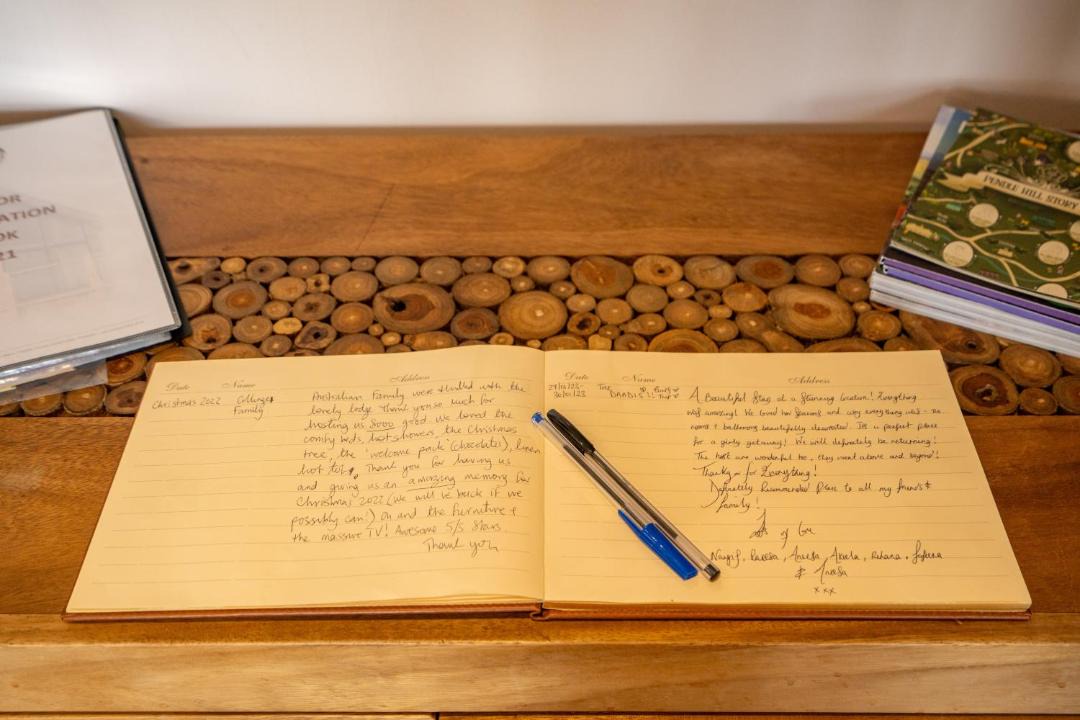 OR
ATION
OK
21
PENDLE HILL STORY
Date Name Address
Christmas 2022 Collinge
Family
Australian Family were thrilled with the
lovely lodge Thank you so much for
hosting us Sooo good we loved the
comfy beds, hot showers, the Christmas
tree, the 'welcome pack' (chocolates), linen
hot tub, Thank you for having us
and giving us an amazing memory for
Christmas 2022 (we will be back if we
possibly can!) Oh and the furniture &
the massive TV! Awesome 5/5 Stars.
Thank you
Date Name Address
The
30/01/23
A Beautiful Stay at a Stunning location! Everything
was amazing! We loved the and everything was - the
rooms & bathrooms beautifully decorated. Its a perfect place
for a girly getaway! We will definately be returning!
The host are wonderful too, they went above and beyond!
for Everything!
Definitely Recommended Place to all my friends &
family.
Aneesa, Rehana,
& Aneesa
xxx